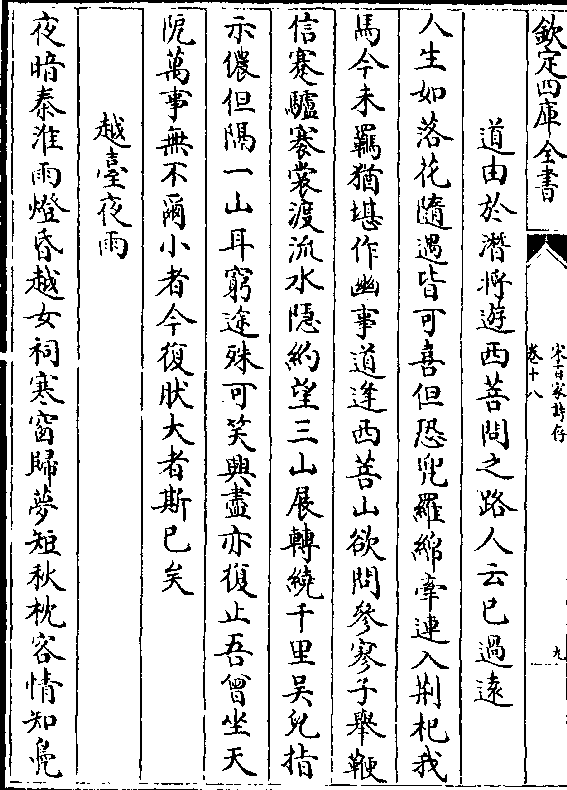 欽定四庫全書
宋百家詩存
卷十八
九
道由於潛將遊西菩問之路人云已過遠
人生如落花隨遇皆可喜但恐兜羅綿牽連入荆杞我
馬今未羈猶堪作幽事道逢西菩山欲問參寥子舉鞭
信蹇驢褰裳渡流水隠約望三山展轉繞千里吴兒指
示儂但隔一山耳窮途殊可笑興盡亦復止吾曾坐天
阨萬事無不爾小者今復狀大者斯已矣
越臺夜雨
夜暗秦淮雨燈昏越女祠寒窗歸夢短秋枕客情知鳬